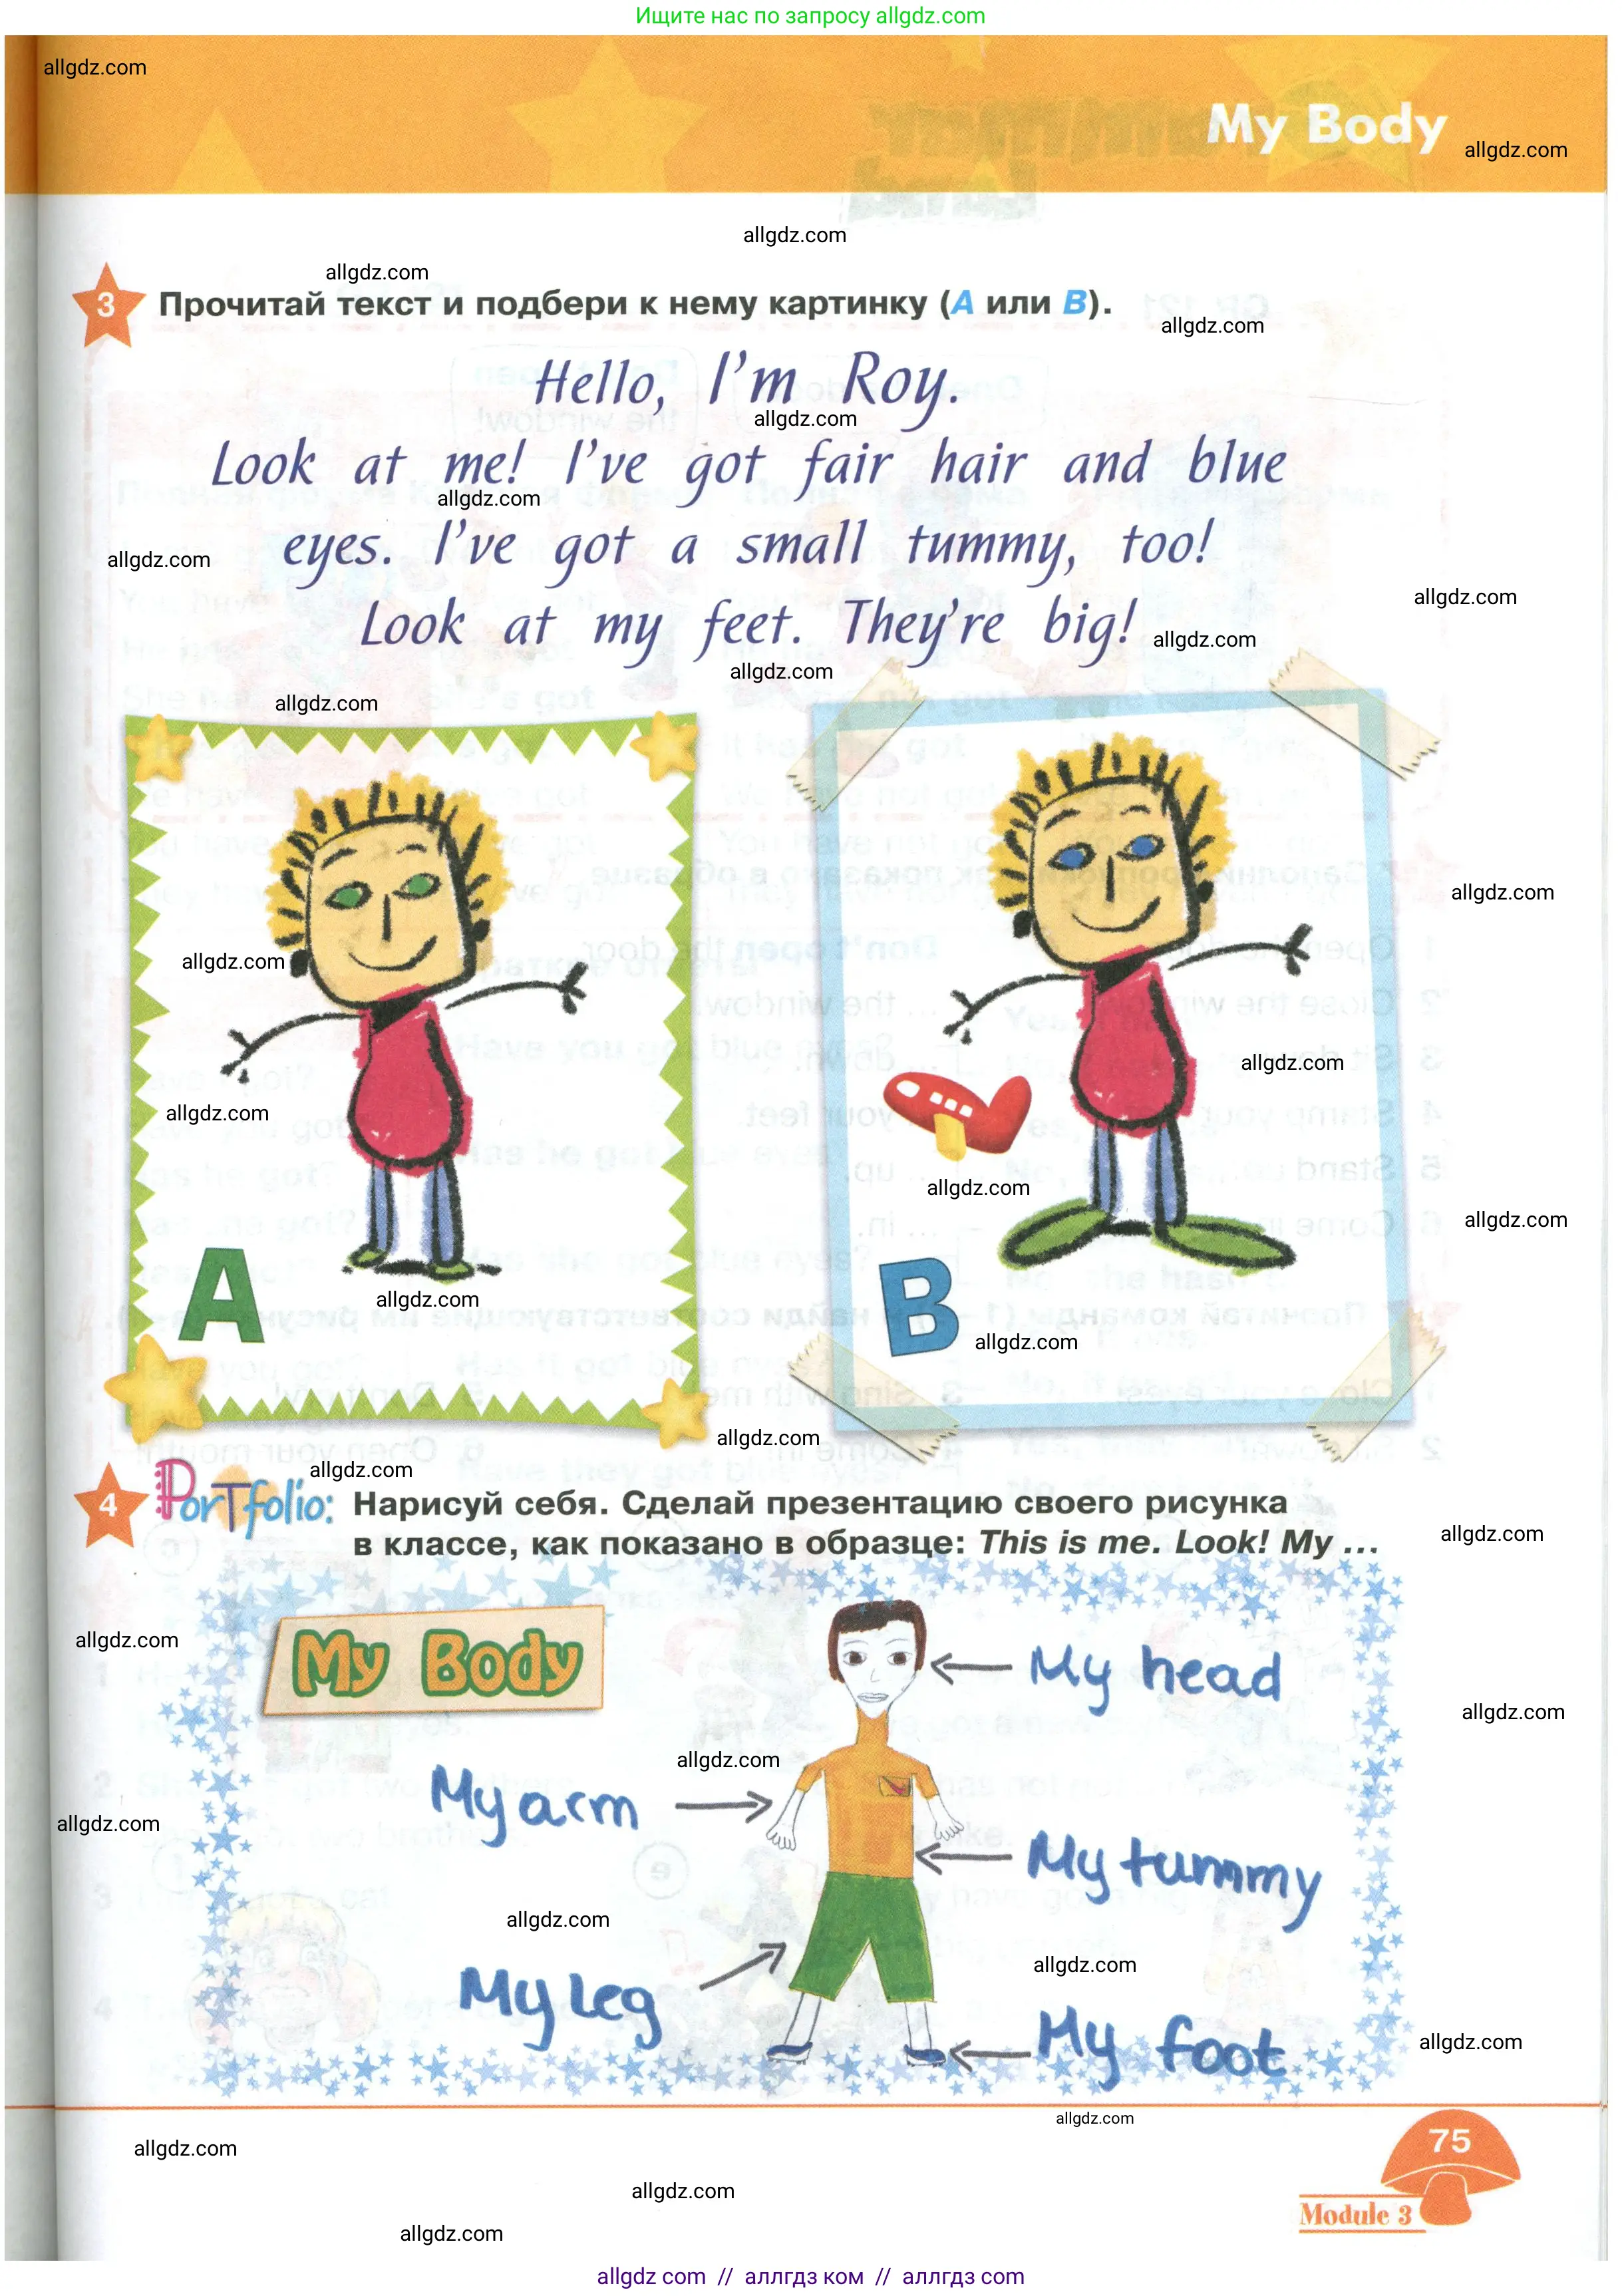 Ищите нас по запросу allgdz.com
allgdz.com
My Body
allgdz.com
allgdz.com
allgdz.com
3 Прочитай текст и подбери к нему картинку (A или B).
allgdz.com
Hello, I'm Roy.
allgdz.com
Look at me! I've got fair hair and blue
allgdz.com
eyes. I've got a small tummy, too!
allgdz.com
allgdz.com
Look at my feet. They're big!
allgdz.com
allgdz.com
allgdz.com
allgdz.com
allgdz.com
allgdz.com
allgdz.com
allgdz.com
allgdz.com
A
allgdz.com
B
allgdz.com
allgdz.com
allgdz.com
4 Portfolio: Нарисуй себя. Сделай презентацию своего рисунка
в классе, как показано в образце: This is me. Look! My ...
allgdz.com
allgdz.com
My Body
My head
allgdz.com
allgdz.com
My arm
allgdz.com
My tummy
allgdz.com
allgdz.com
My leg
My foot
allgdz.com
allgdz.com
75
allgdz.com
allgdz.com
Module 3
allgdz.com
allgdz com // аллгдз ком // аллгдз com